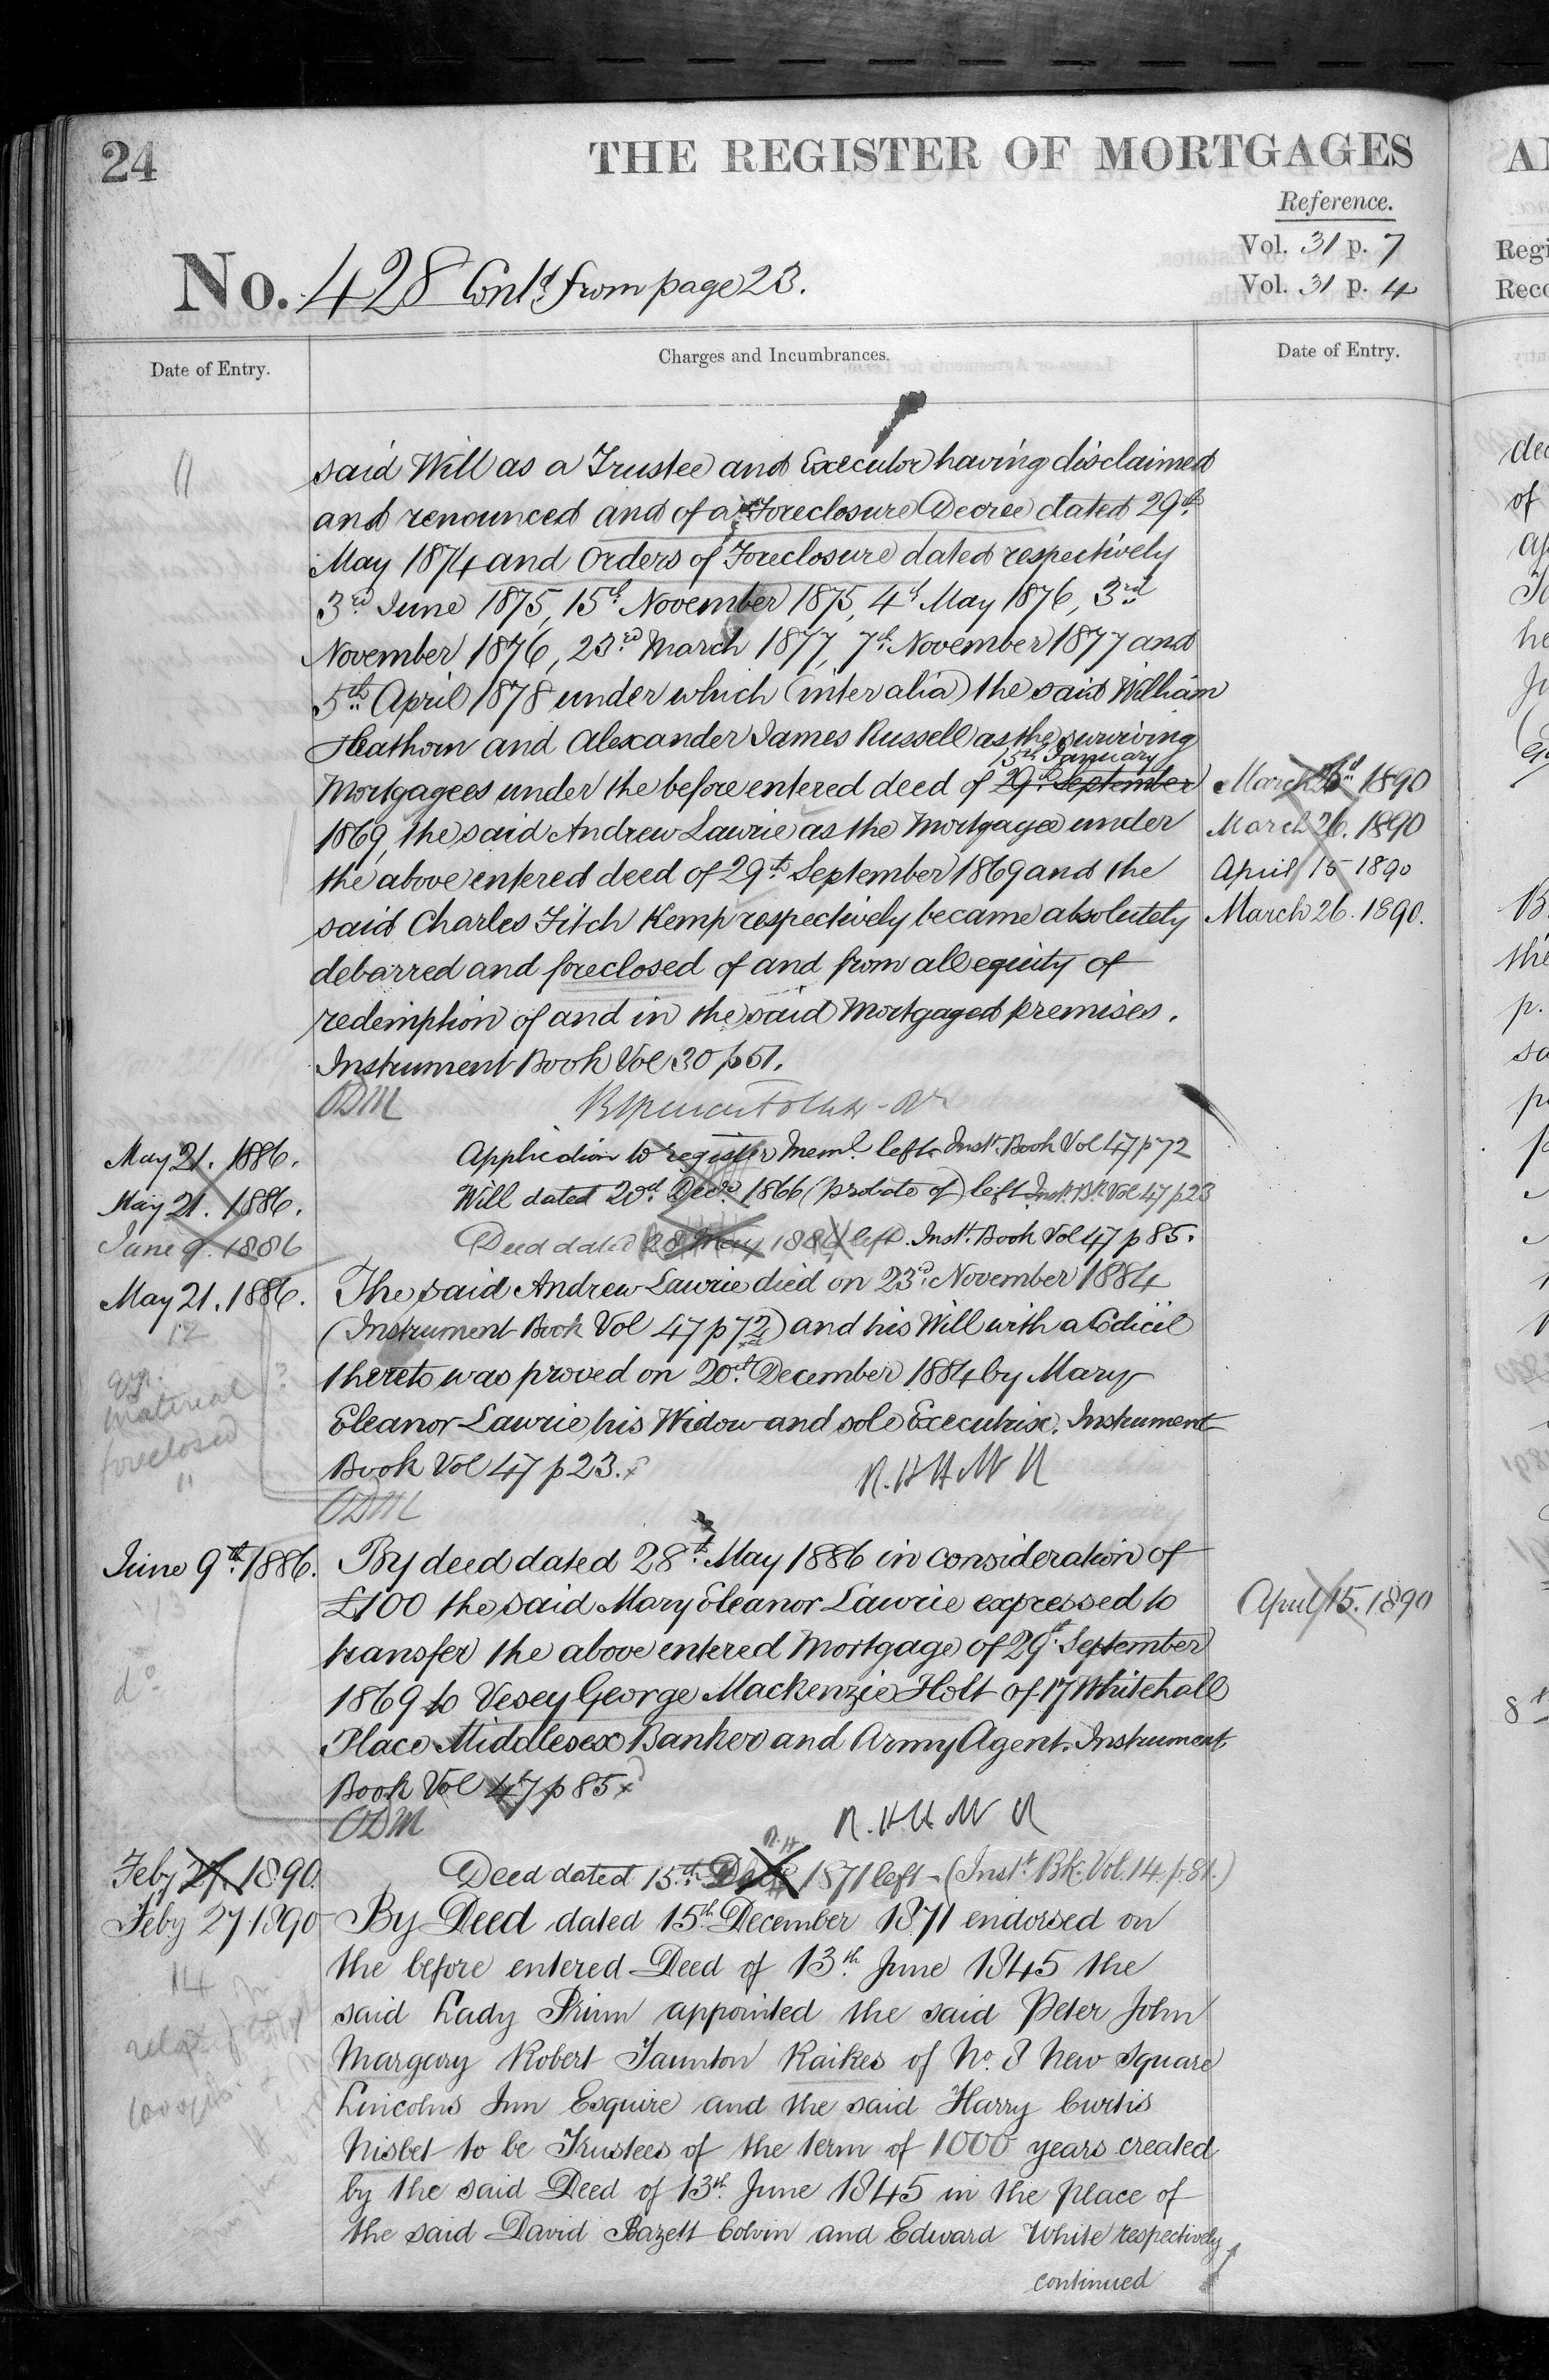 24
THE REGISTER OF MORTGAGES
Reference.
Vol. 31 p. 7
Vol. 31 p. 4
No. 428 Contd from page 23.
Date of Entry.
Charges and Incumbrances.
Date of Entry.
11
said Will as a Trustee and Executor having disclaimed
and renounced and of a Foreclosure Decree dated 29th
May 1874 and Orders of Foreclosure dated respectively
3rd June 1875, 15th November 1875, 4th May 1876, 3rd
November 1876, 23rd March 1877, 7th November 1877 and
5th April 1878 under which (inter alia) the said William
Heathorn and Alexander James Russell as the surviving
15th January
Mortgagees under the before entered deed of 29th September
March 26th 1890
1869, the said Andrew Lawrie as the Mortgagee under
March 26. 1890
the above entered deed of 29th September 1869 and the
April 15 1890
said Charles Fitch Kemp respectively became absolutely
March 26. 1890.
debarred and foreclosed of and from all equity of
redemption of and in the said Mortgaged premises.
Instrument Book Vol 30 p 51.
ODM
May 21. 1886.
Application to register Meml. left Inst. Book Vol 47 p 72
May 21. 1886.
Will dated 20th Decr 1866 (probate of) left Inst. Bk. Vol 47 p 23
June 9. 1886
Deed dated 28 May 1886 left. Inst. Book Vol 47 p 85.
May 21. 1886.
The said Andrew Lawrie died on 23rd November 1884
12
(Instrument Book Vol 47 p 72) and his Will with a Codicil
qy.
thereto was proved on 20th December 1884 by Mary
material ?
Eleanor Lawrie his Widow and sole Executrix. Instrument
foreclosed
Book Vol 47 p 23.
"
ODM
June 9th 1886.
By deed dated 28th May 1886 in consideration of
13
£100 the said Mary Eleanor Lawrie expressed to
April 15. 1890
transfer the above entered Mortgage of 29th September
do
1869 to Vesey George Mackenzie Holt of 17 Whitehall
Place Middlesex Banker and Army Agent. Instrument
Book Vol 47 p 85
ODM
Feby 27. 1890.
Deed dated 15th Decr 1871 left (Inst. Bk. Vol. 14 p. 81.)
Feby 27 1890
By Deed dated 15th December 1871 endorsed on
the before entered Deed of 13th June 1845 the
14
said Lady Prinn appointed the said Peter John
Margary Robert Taunton Raikes of No. 8 New Square
Lincolns Inn Esquire and the said Harry Curtis
Nisbet to be Trustees of the term of 1000 years created
by the said Deed of 13th June 1845 in the place of
the said David Bazett Colvin and Edward White respectively
continued